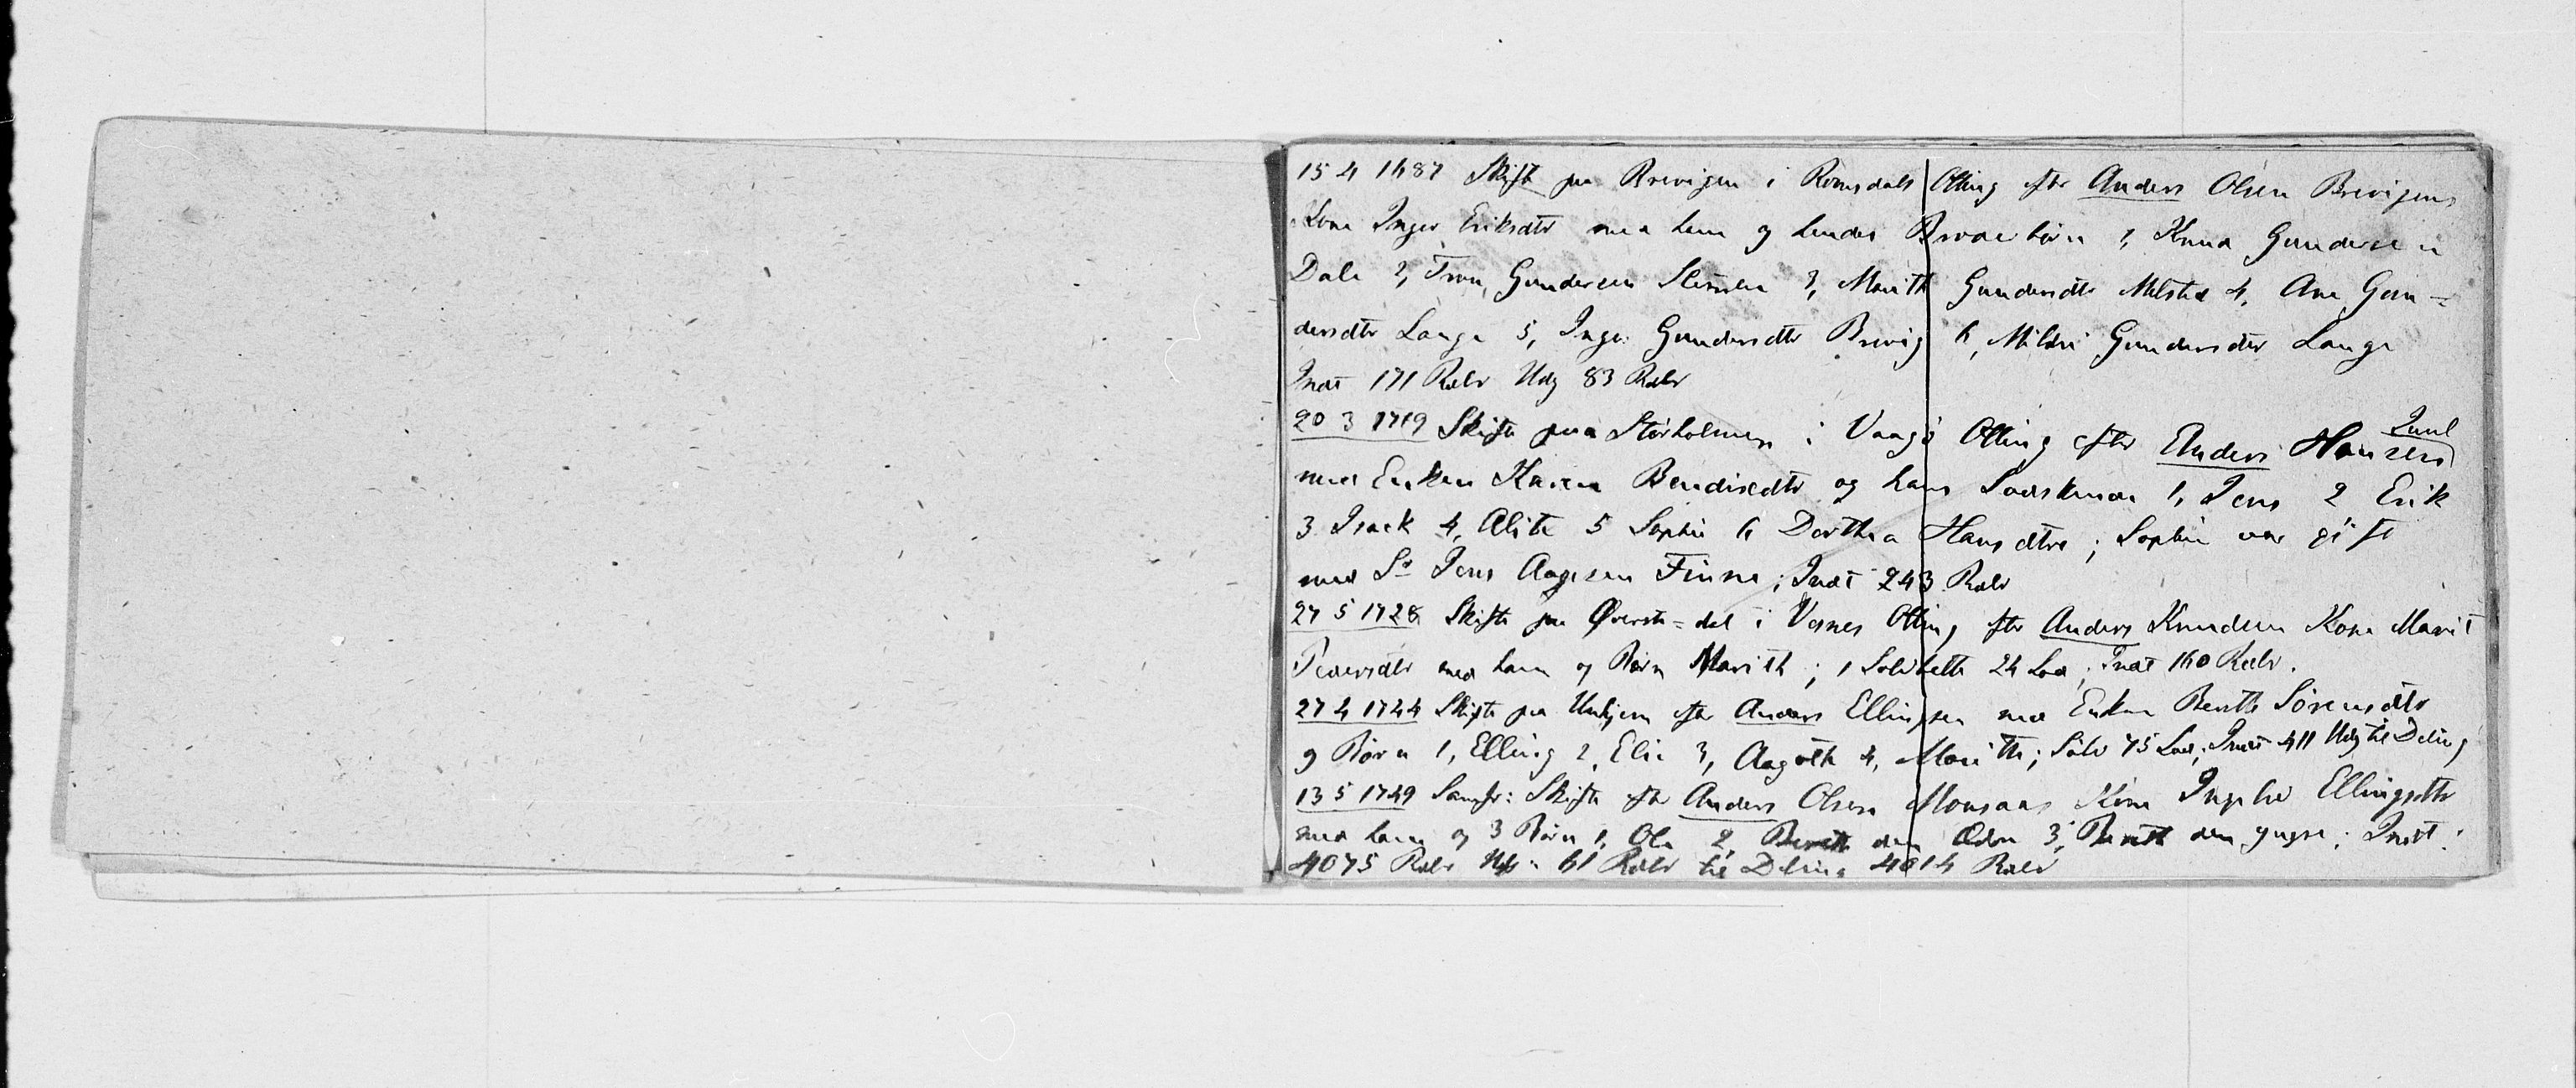 15 4 1687 Skifte paa Brevigen i Romsdals Otting efter Anders Olsen Brevigens
Kone Inger Eriksdtr med ham og hendes Broderbørn 1, Knud Gundersen
Dale 2, Tron Gundersen 3, Marith Gundersdtr Melsted 4, Ane Gun=
dersdtr Lange 5, Inger Gundersdtr Brevig 6, Mildri Gundersdtr Lange
Indt 171 Rdlr Udg 83 Rdlr
20 3 1719 Skifte paa Storholmen i Vaagø Otting efter Anders Hansen Juul
med Enken Karen Bendixdtr og hans Sødskende 1, Jens 2 Erik
3 Isack 4, Alite 5 Sophie 6 Dorthea Hansdtre; Sophie var gift
med Sr Jens Aagesen Finne; Indt 243 Rdlr
27 5 1728 Skifte paa Øverste=dal i Vesnes Otting efter Anders Knudsen Kone Marit
Pedersdtr med ham og Børn Marith; 1 Sølvbelte 24 Lod; Indt 160 Rdlr.
27 4 1744 Skifte paa Unhjem efter Anders Ellingsen med Enken Berith Sørensdtr
og Børn 1, Elling 2, Eli 3, Aagoth 4, Marith; Sølv 75 Lod; Indt 411 Udg til Deling
13 5 1749 Samfr: Skifte efter Anders Olsen Monsaas Kone Ingebor Ellingsdtr
med ham og 3 Børn 1, Ole 2, Berith den Ældre 3, Berith den yngre; Indt:
4075 Rdlr Udg 61 Rdlr til Deling 4014 Rdlr